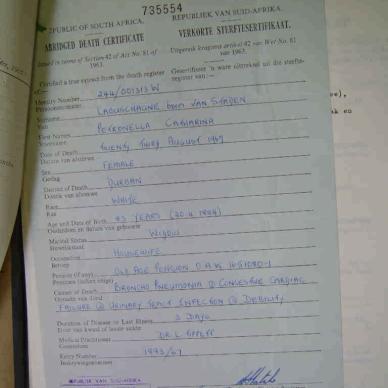 735554
REPUBLIC OF SOUTH AFRICA. REPUBLIEK VAN SUID-AFRIKA.
ABRIDGED DEATH CERTIFICATE VERKORTE STERFTESERTIFIKAAT.
Issued in terms of Section 42 of Act No. 81 of 1963. Uitgereik kragtens artikel 42 van Wet No. 81 van 1963.
Certified a true extract from the death register of:— Gesertifiseer 'n ware uittreksel uit die sterfteregister van:—
Identity Number 244/001313W
Persoonsnommer
Surname LABUSCHAGNE born VAN STADEN
Van
First Names PETRONELLA CATHARINA
Voorname
Date of Death TWENTY THIRD AUGUST 1967
Datum van afsterwe
Sex FEMALE
Geslag
District of Death DURBAN
Distrik van afsterwe
Race WHITE
Ras
Age and Date of Birth 83 YEARS
Ouderdom en datum van geboorte
Marital Status WIDOW
Huwelikstaat
Occupation HOUSEWIFE
Beroep
Pension (if any) OLD AGE PENSION
Pensioen (indien enige)
Causes of Death BRONCHO PNEUMONIA CONGESTIVE CARDIAC
Oorsake van dood FAILURE URINARY TRACT INFECTION DEBILITY
Duration of Disease or Last Illness 3 DAYS
Duur van kwaal of laaste siekte
Medical Practitioner DR L
Geneesheer
Entry Number 1993/67
Inskrywingsnommer
REPUBLIEK VAN SUID-AFRIKA